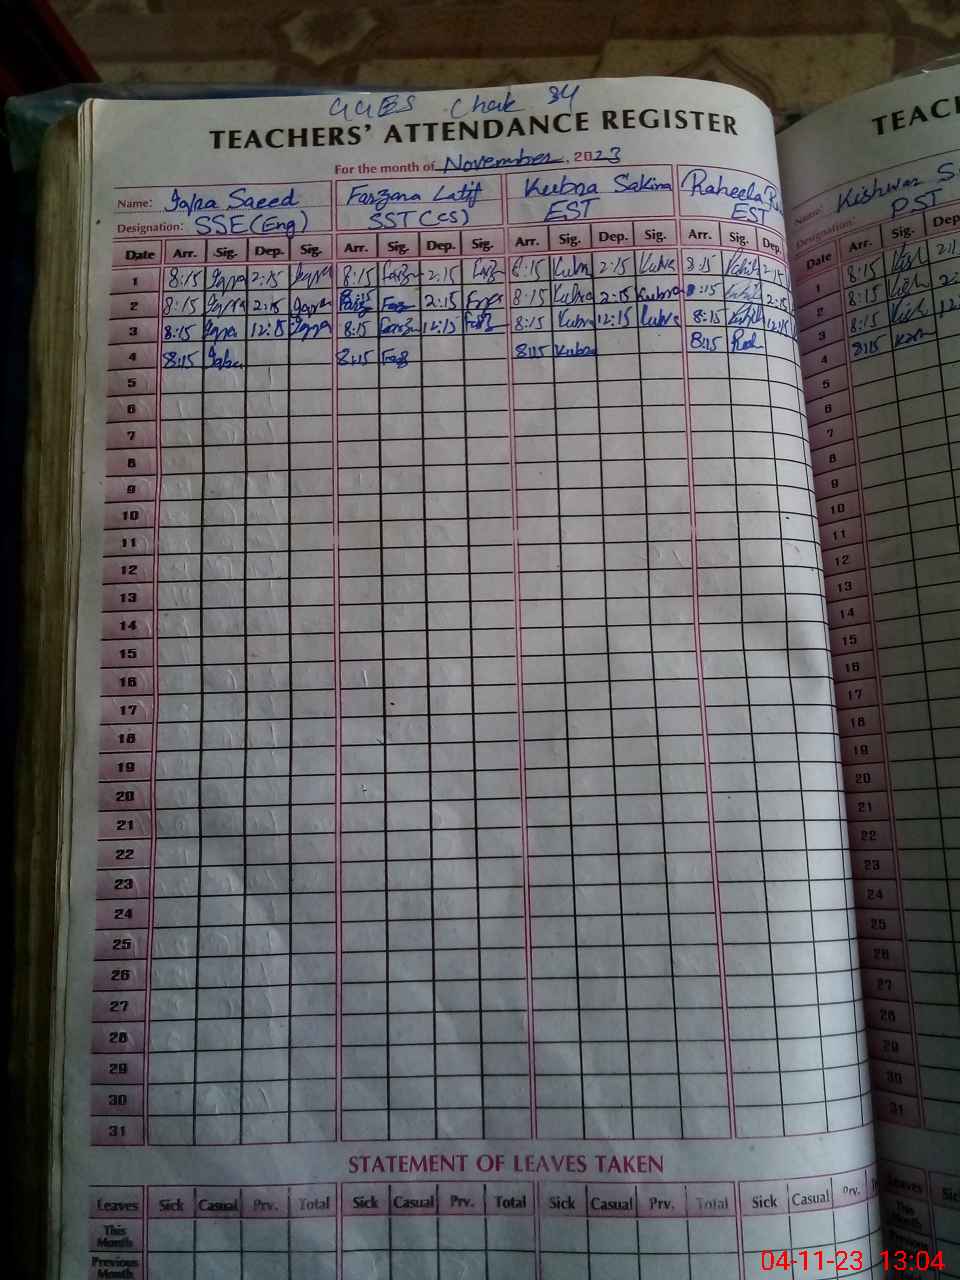 GGES Chak 34
TEACHERS' ATTENDANCE REGISTER
For the month of November, 2023
Name: Iqra Saeed Farzana Latif Kubra Sakina Raheela
Designation: SSE(Eng) SST(CS) EST EST
Date Arr. Sig. Dep. Sig. Arr. Sig. Dep. Sig. Arr. Sig. Dep. Sig. Arr. Sig. Dep.
1 8:15 Iqra 2:15 Iqra 8:15 Farz 2:15 Farz 8:15 Kubra 2:15 Kubra 8:15 2:15
2 8:15 Iqra 2:15 Iqra 8:15 Farz 2:15 Farz 8:15 Kubra 2:15 Kubra 8:15 2:15
3 8:15 Iqra 12:15 Iqra 8:15 Farz 12:15 Farz 8:15 Kubra 12:15 Kubra 8:15 12:15
4 8:15 Iqra 8:15 Farz 8:15 Kubra 8:15
5
6
7
8
9
10
11
12
13
14
15
16
17
18
19
20
21
22
23
24
25
26
27
28
29
30
31
STATEMENT OF LEAVES TAKEN
Leaves Sick Casual Prv. Total Sick Casual Prv. Total Sick Casual Prv. Total Sick Casual Prv.
This Month
Previous Month
TEAC
Name: Kishwar S
Designation: PST
Date Arr. Sig. Dep
1 8:15 2:1
2 8:15 2:
3 8:15 12
4 8:15
5
6
7
8
9
10
11
12
13
14
15
16
17
18
19
20
21
22
23
24
25
26
27
28
29
30
31
Leaves Sic
This Month
Previous Month
04-11-23 13:04